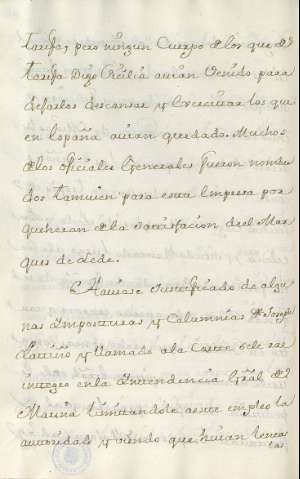 tarifa, pero ningun Cuerpo de los que Dn
tarifa Dijo Cicilia avian Venido para
dejarlos descansar y Exercitar los que
en España avian quedado. Muchos
de los oficiales Generales fueron nombra
dos tamuien para esta Empresa por
que heran de la Satisfacion deel Mar
ques de Lede.
Haviase Justificado de algu
nas Imposturas y Calumnias Dn Joseph
Patiño y llamado ala Corte sele rre
integro enla Intendencia Gral de
Marina limitandole aeste empleo la
autoridad y viendo que havian